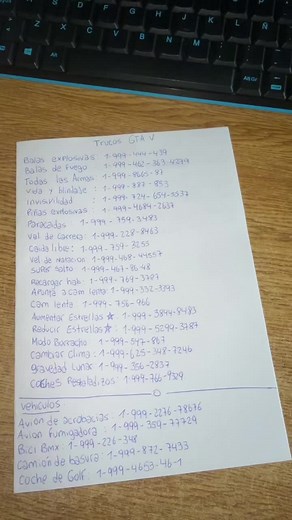 Trucos GTA V
Balas explosivas 1-999-444-439
Balas de Fuego 1-999-462-363-4279
Todas las Armas 1-999-8665-87
Vida y blindaje : 1-999-887-853
Invisibilidad : 1-999-824-654-5537
Piñas explosivas 1-999-4684-2637
Paracaidas : 1-999-759-3483
Vel de Carrera: 1-999-228-8463
Caida libre: 1-999-759-3255
Vel de Natacion 1-999-468-44557
Super Salto 1-999-467-86-48
Recargar hab 1-999-769-3787
Apunta a cam lenta: 1-999-332-3393
Cam lenta: 1-999-756-966
Aumentar Estrellas ★ : 1-999-3844-8483
Reducir Estrellas ★ : 1-999-5299-3787
Modo Borracho : 1-999-547-867
Cambiar Clima : 1-999-625-348-7246
gravedad Lunar 1-999-356-2837
Coches Resbaladizos: 1-999-766-9329
Vehiculos
Avion de acrobacias : 1-999-2276-78676
Avion Fumigadora : 1-999-359-77729
Bici Bmx : 1-999-226-348
Camión de basura : 1-999-872-7433
Coche de Golf : 1-999-4653-46-1